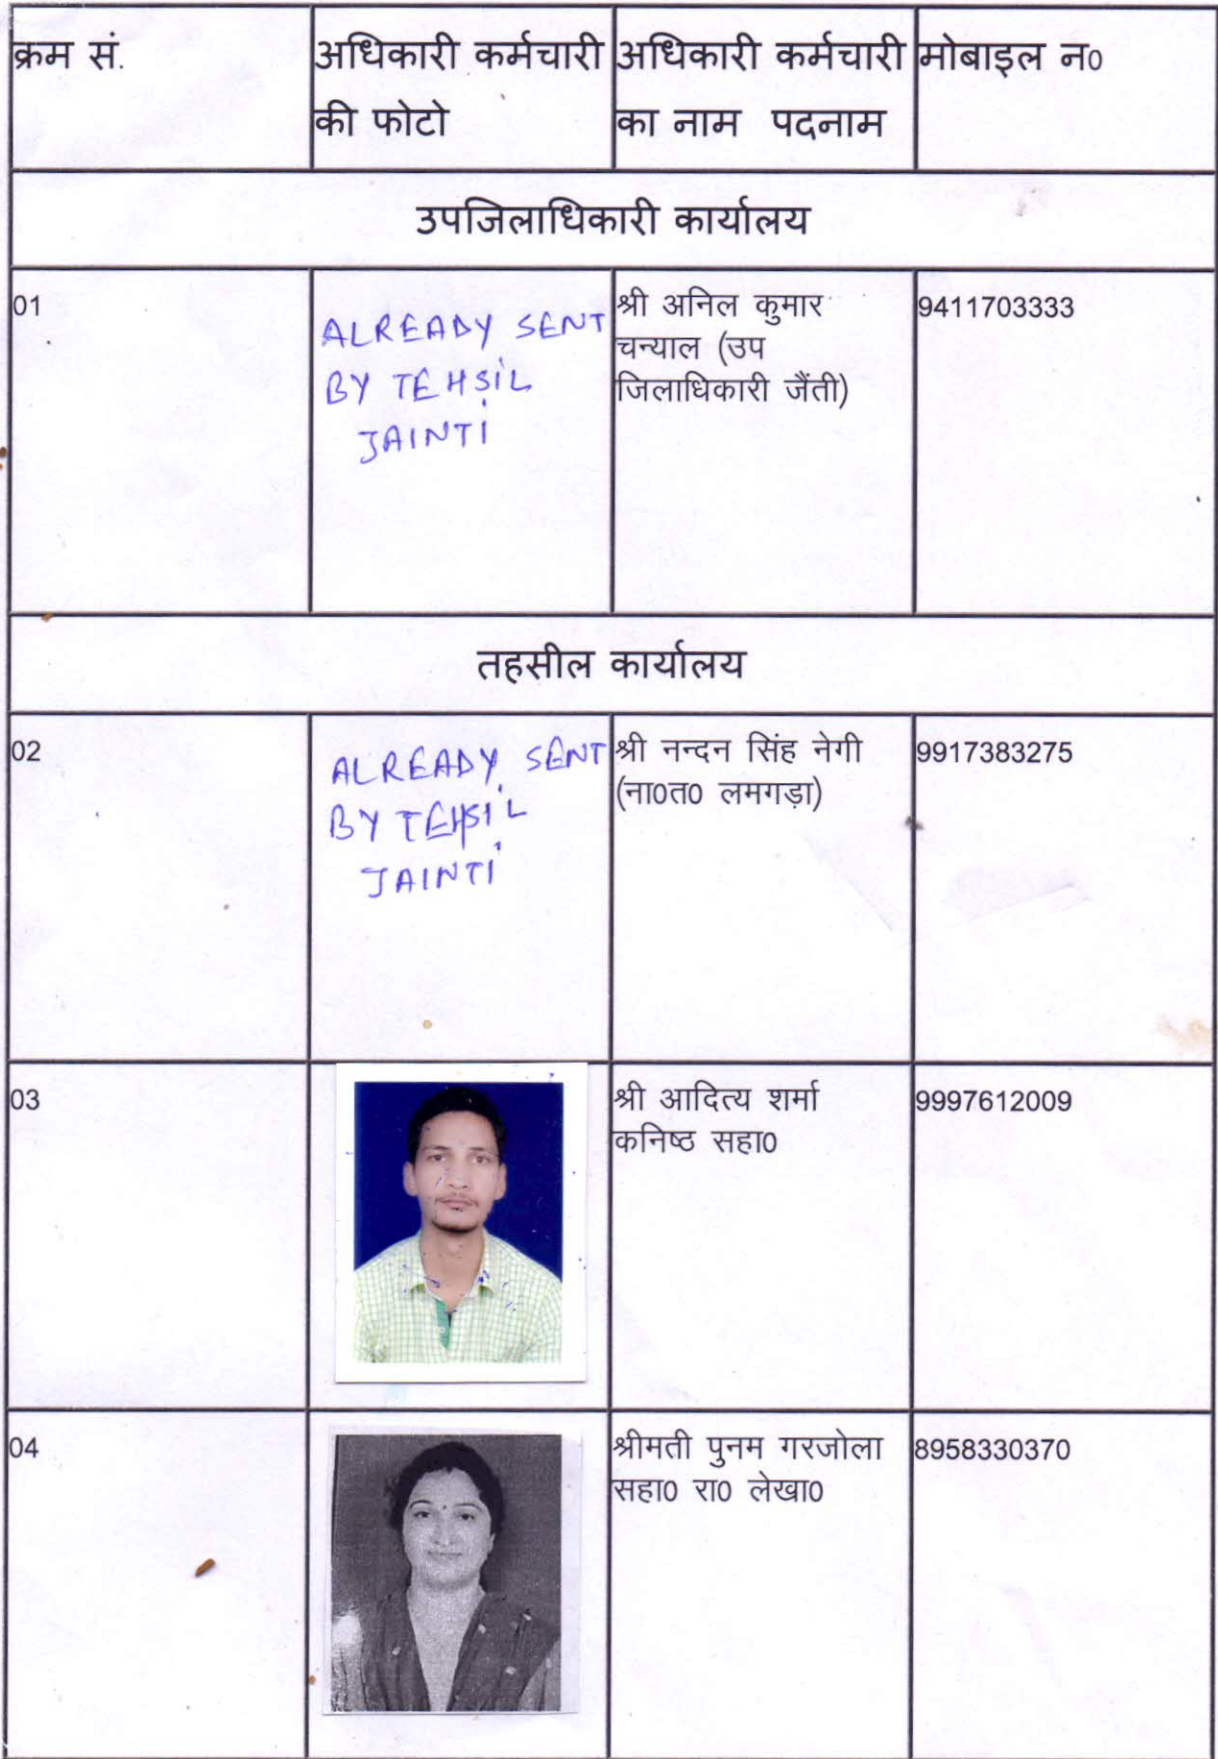 क्रम सं.
अधिकारी कर्मचारी
की फोटो
अधिकारी कर्मचारी
का नाम पदनाम
मोबाइल न0
उपजिलाधिकारी कार्यालय
01
ALREADY SENT
BY TEHSIL
JAINTI
श्री अनिल कुमार
चन्याल (उप
जिलाधिकारी जैंती)
9411703333
तहसील कार्यालय
02
ALREADY SENT
BY TEHSIL
JAINTI
श्री नन्दन सिंह नेगी
(ना0त0 लमगड़ा)
9917383275
03
श्री आदित्य शर्मा
कनिष्ठ सहा0
9997612009
04
श्रीमती पुनम गरजोला
सहा0 रा0 लेखा0
8958330370